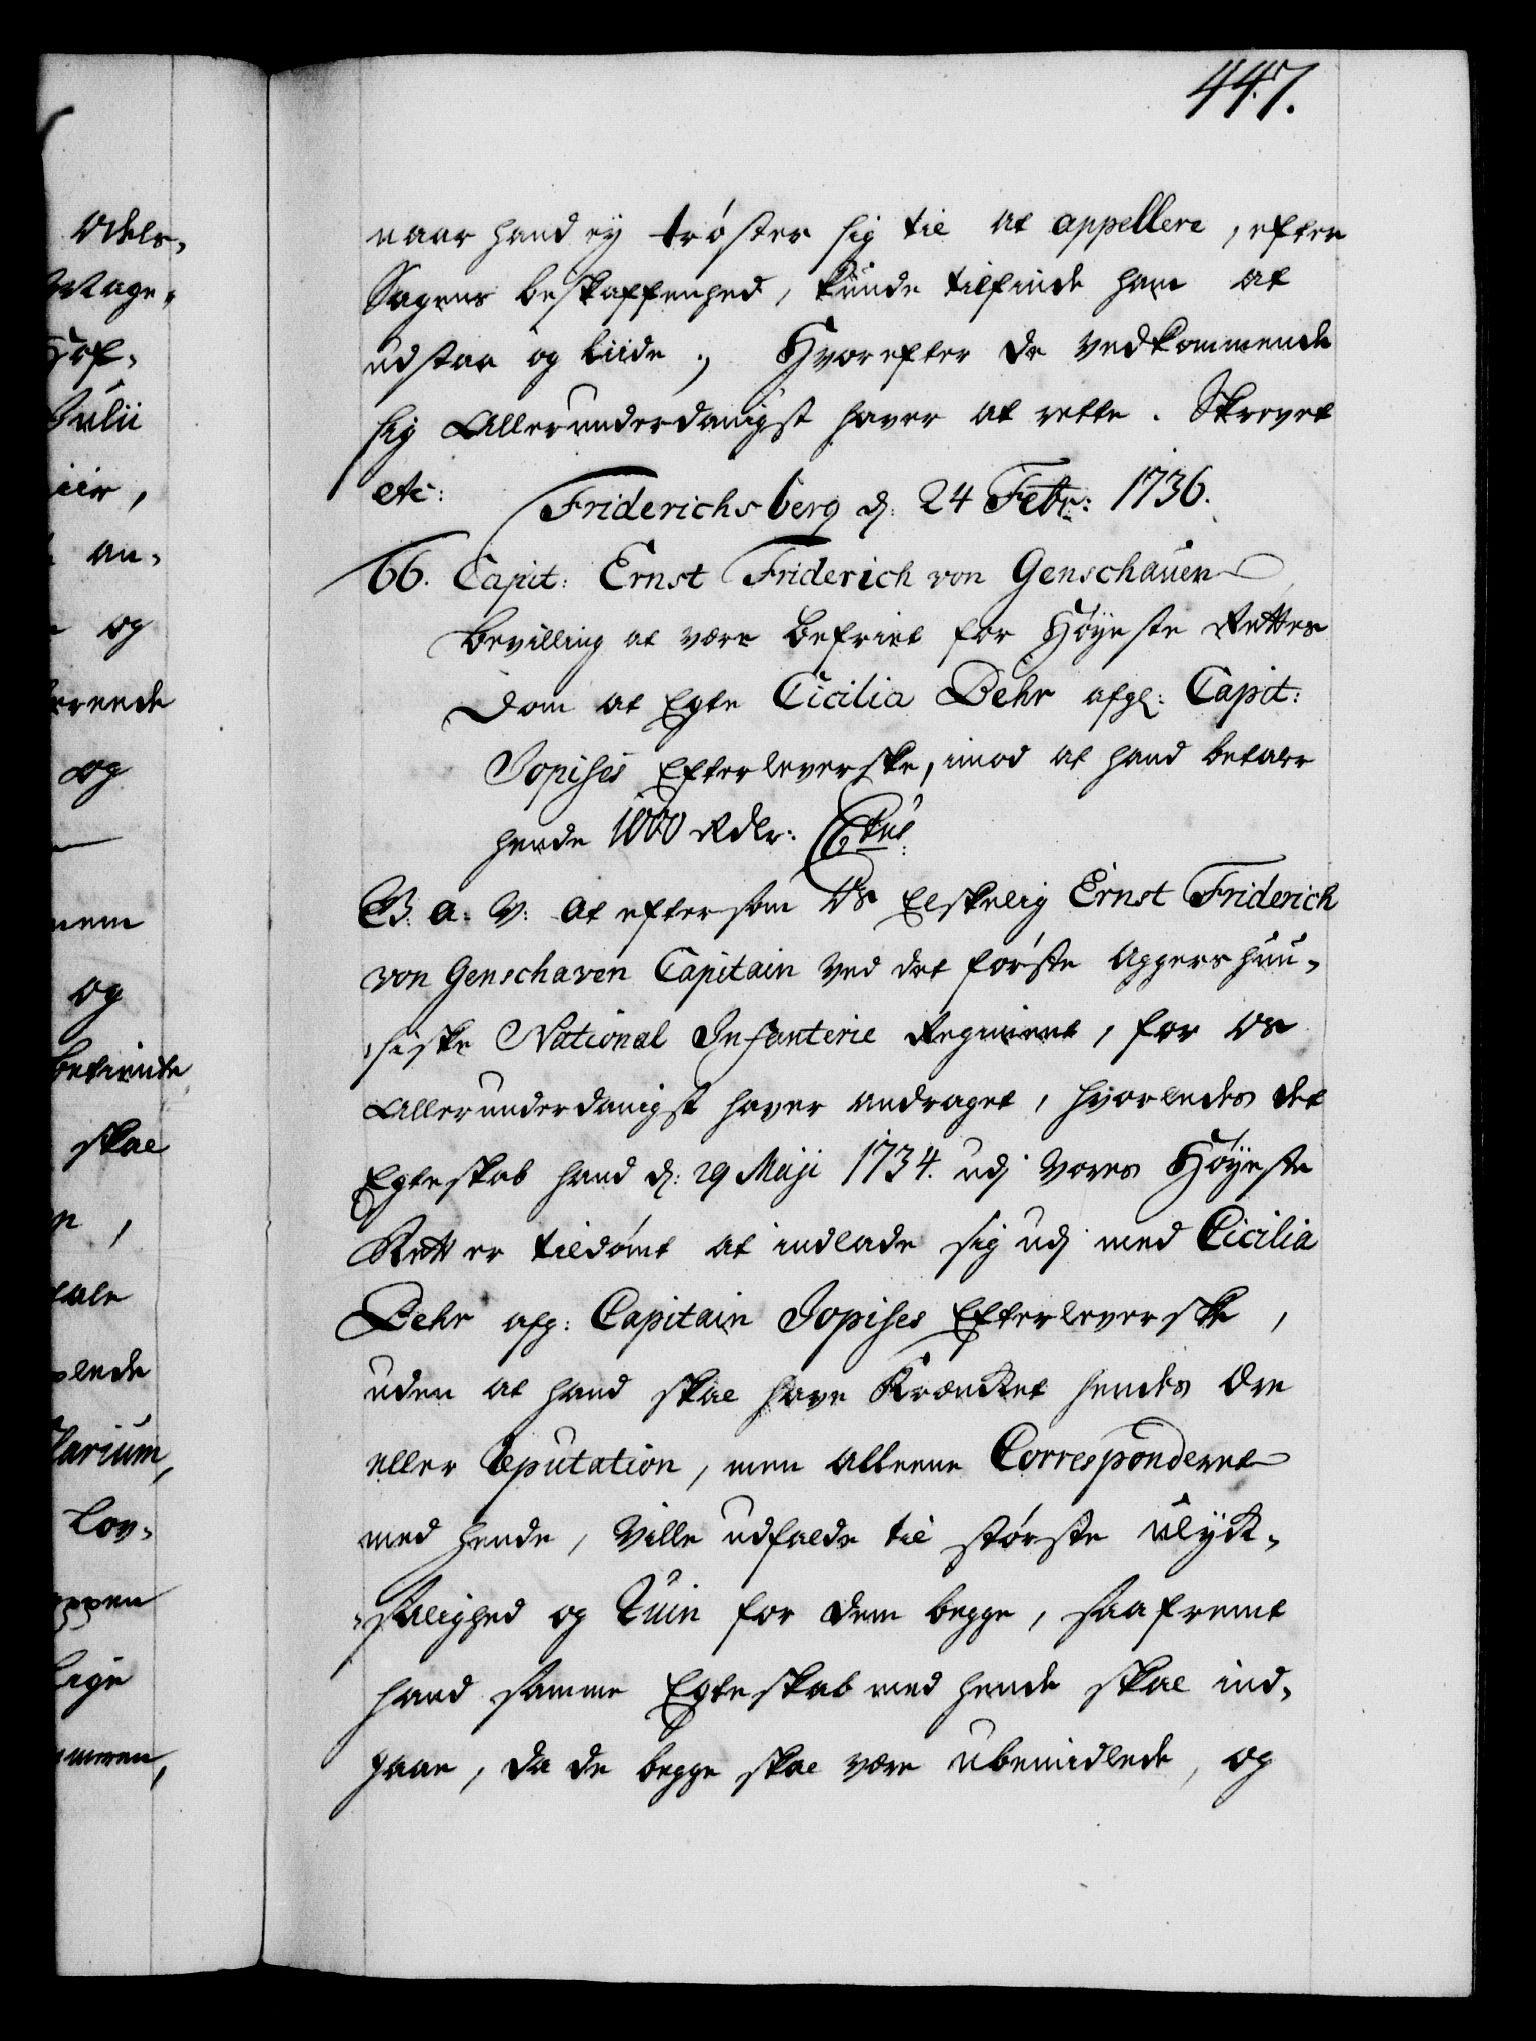 447.
naar hand ey trøster sig til at appellere, efter
Sagens beskaffenhed, kunde tilfinde ham at
udstaa og liide; Hvorefter de vedkommende
sig Allerunderdanigst haver at rette. Skrevet
etc: Friderichsberg d: 24 Febr: 1736.
66. Capit: Ernst Friderich von Genschauen
bevilling at være befriet for Høyeste Rettes
Dom at Egte Cicilia Behr afg: Capit:
Jopises Efterleverske, imod at hand betaler
hende 1000 Rdlr:
G. a. V: At eftersom Os Elskelig Ernst Friderich
von Genschaven Capitain ved det første Aggershuu-
siske National Infanterie Regiment, for Os
Allerunderdanigst haver andraget, hvorledes det
Egteskab hand d: 29 Maji 1734. udj Vores Høyeste
Rett er tildømt at indlade sig udj med Cicilia
Behr afg: Capitain Jopises Efterleverske,
uden at hand skal have Krænket hendes Ære
eller Reputation, men alleene Corresponderet
med hende, Ville udfalde til største Ulyck-
salighed og Ruin for dem begge, saafremt
hand samme Egteskab med hende skal ind-
gaae, da de begge skal være ubemidlede, og
Odels-
Julii
an-
og
og
og
skal